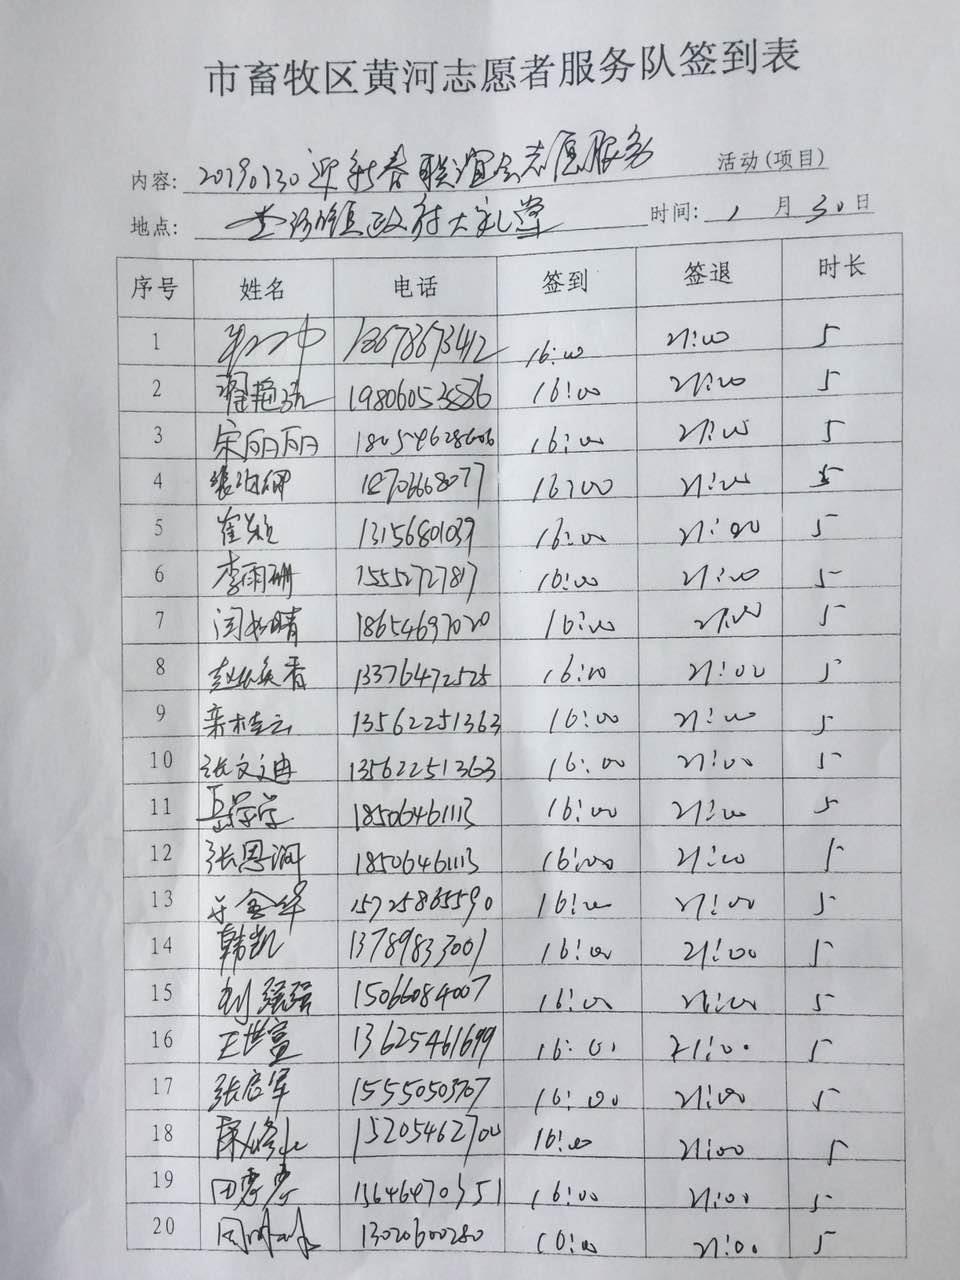 市畜牧区黄河志愿者服务队签到表
内容: 20190130迎新春联谊会志愿服务 活动(项目)
地点: 镇政府大礼堂 时间: 1 月 30 日
序号 姓名 电话 签到 签退 时长
1 13678673412 16:00 21:00 5
2 翟艳 16:00 21:00 5
3 宋丽丽 18054628606 16:00 21:00 5
4 16:00 21:00 5
5 崔 13156801039 16:00 21:00 5
6 李雨珊 15552727817 16:00 21:00 5
7 闫 晴 18654697020 16:00 21:00 5
8 赵 香 13376472525 16:00 21:00 5
9 栾桂云 13562251363 16:00 21:00 5
10 张文迪 13562251363 16:00 21:00 5
11 岳学学 18506461113 16:00 21:00 5
12 张恩润 18506461113 16:00 21:00 5
13 金华 15725865590 16:00 21:00 5
14 韩凯 13789833001 16:00 21:00 5
15 刘强强 15066084007 16:00 21:00 5
16 王世富 13625461699 16:00 21:00 5
17 张启军 15550503707 16:00 21:00 5
18 15205462700 16:00 21:00 5
19 田 13646470351 16:00 21:00 5
20 周 13020600280 16:00 21:00 5